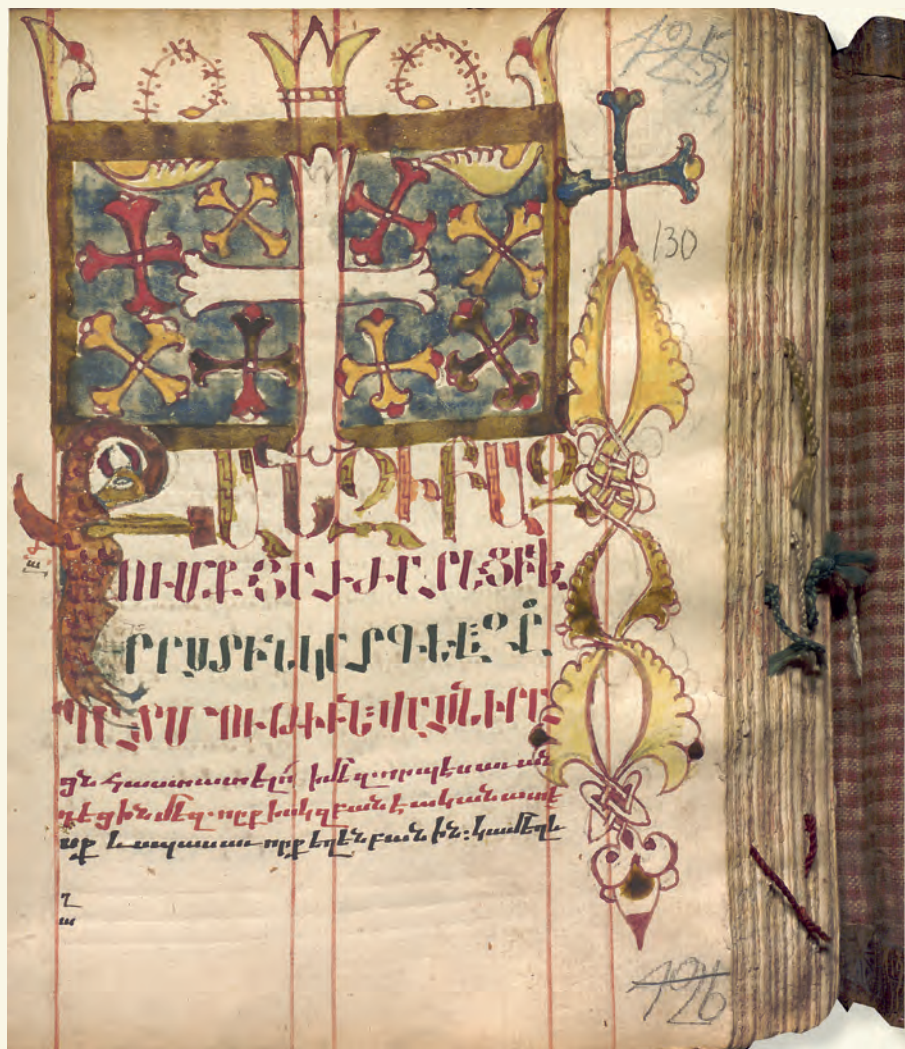 130
ՔԱՆԶԻ ԲԱԶ
ՈՒՄՔ ՅԱՒԺԱՐԵՑԻՆ ՎԵ
ՐՍՏԻՆ ԿԱՐԳԵԼ Զ
ՊԱՏՄՈՒԹԻՒՆ ՎԱՍՆ ԻՐԱ
ցն հաստատելոց ի մեզ. որպէս աւան
դեցին մեզ. որք ի սկզբանէ ականատե
սք և սպասաւորք եղեն բանին: կամ եղև
426